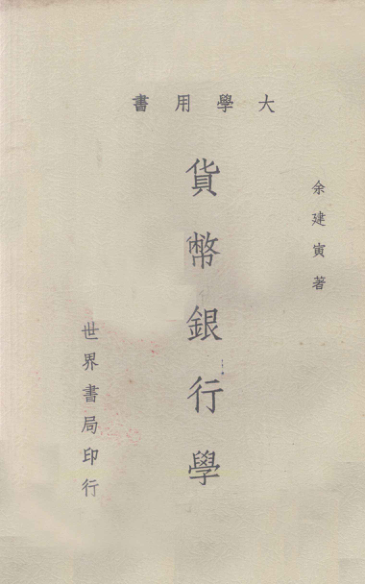 大學用書
余建寅著
貨幣銀行學
世界書局印行